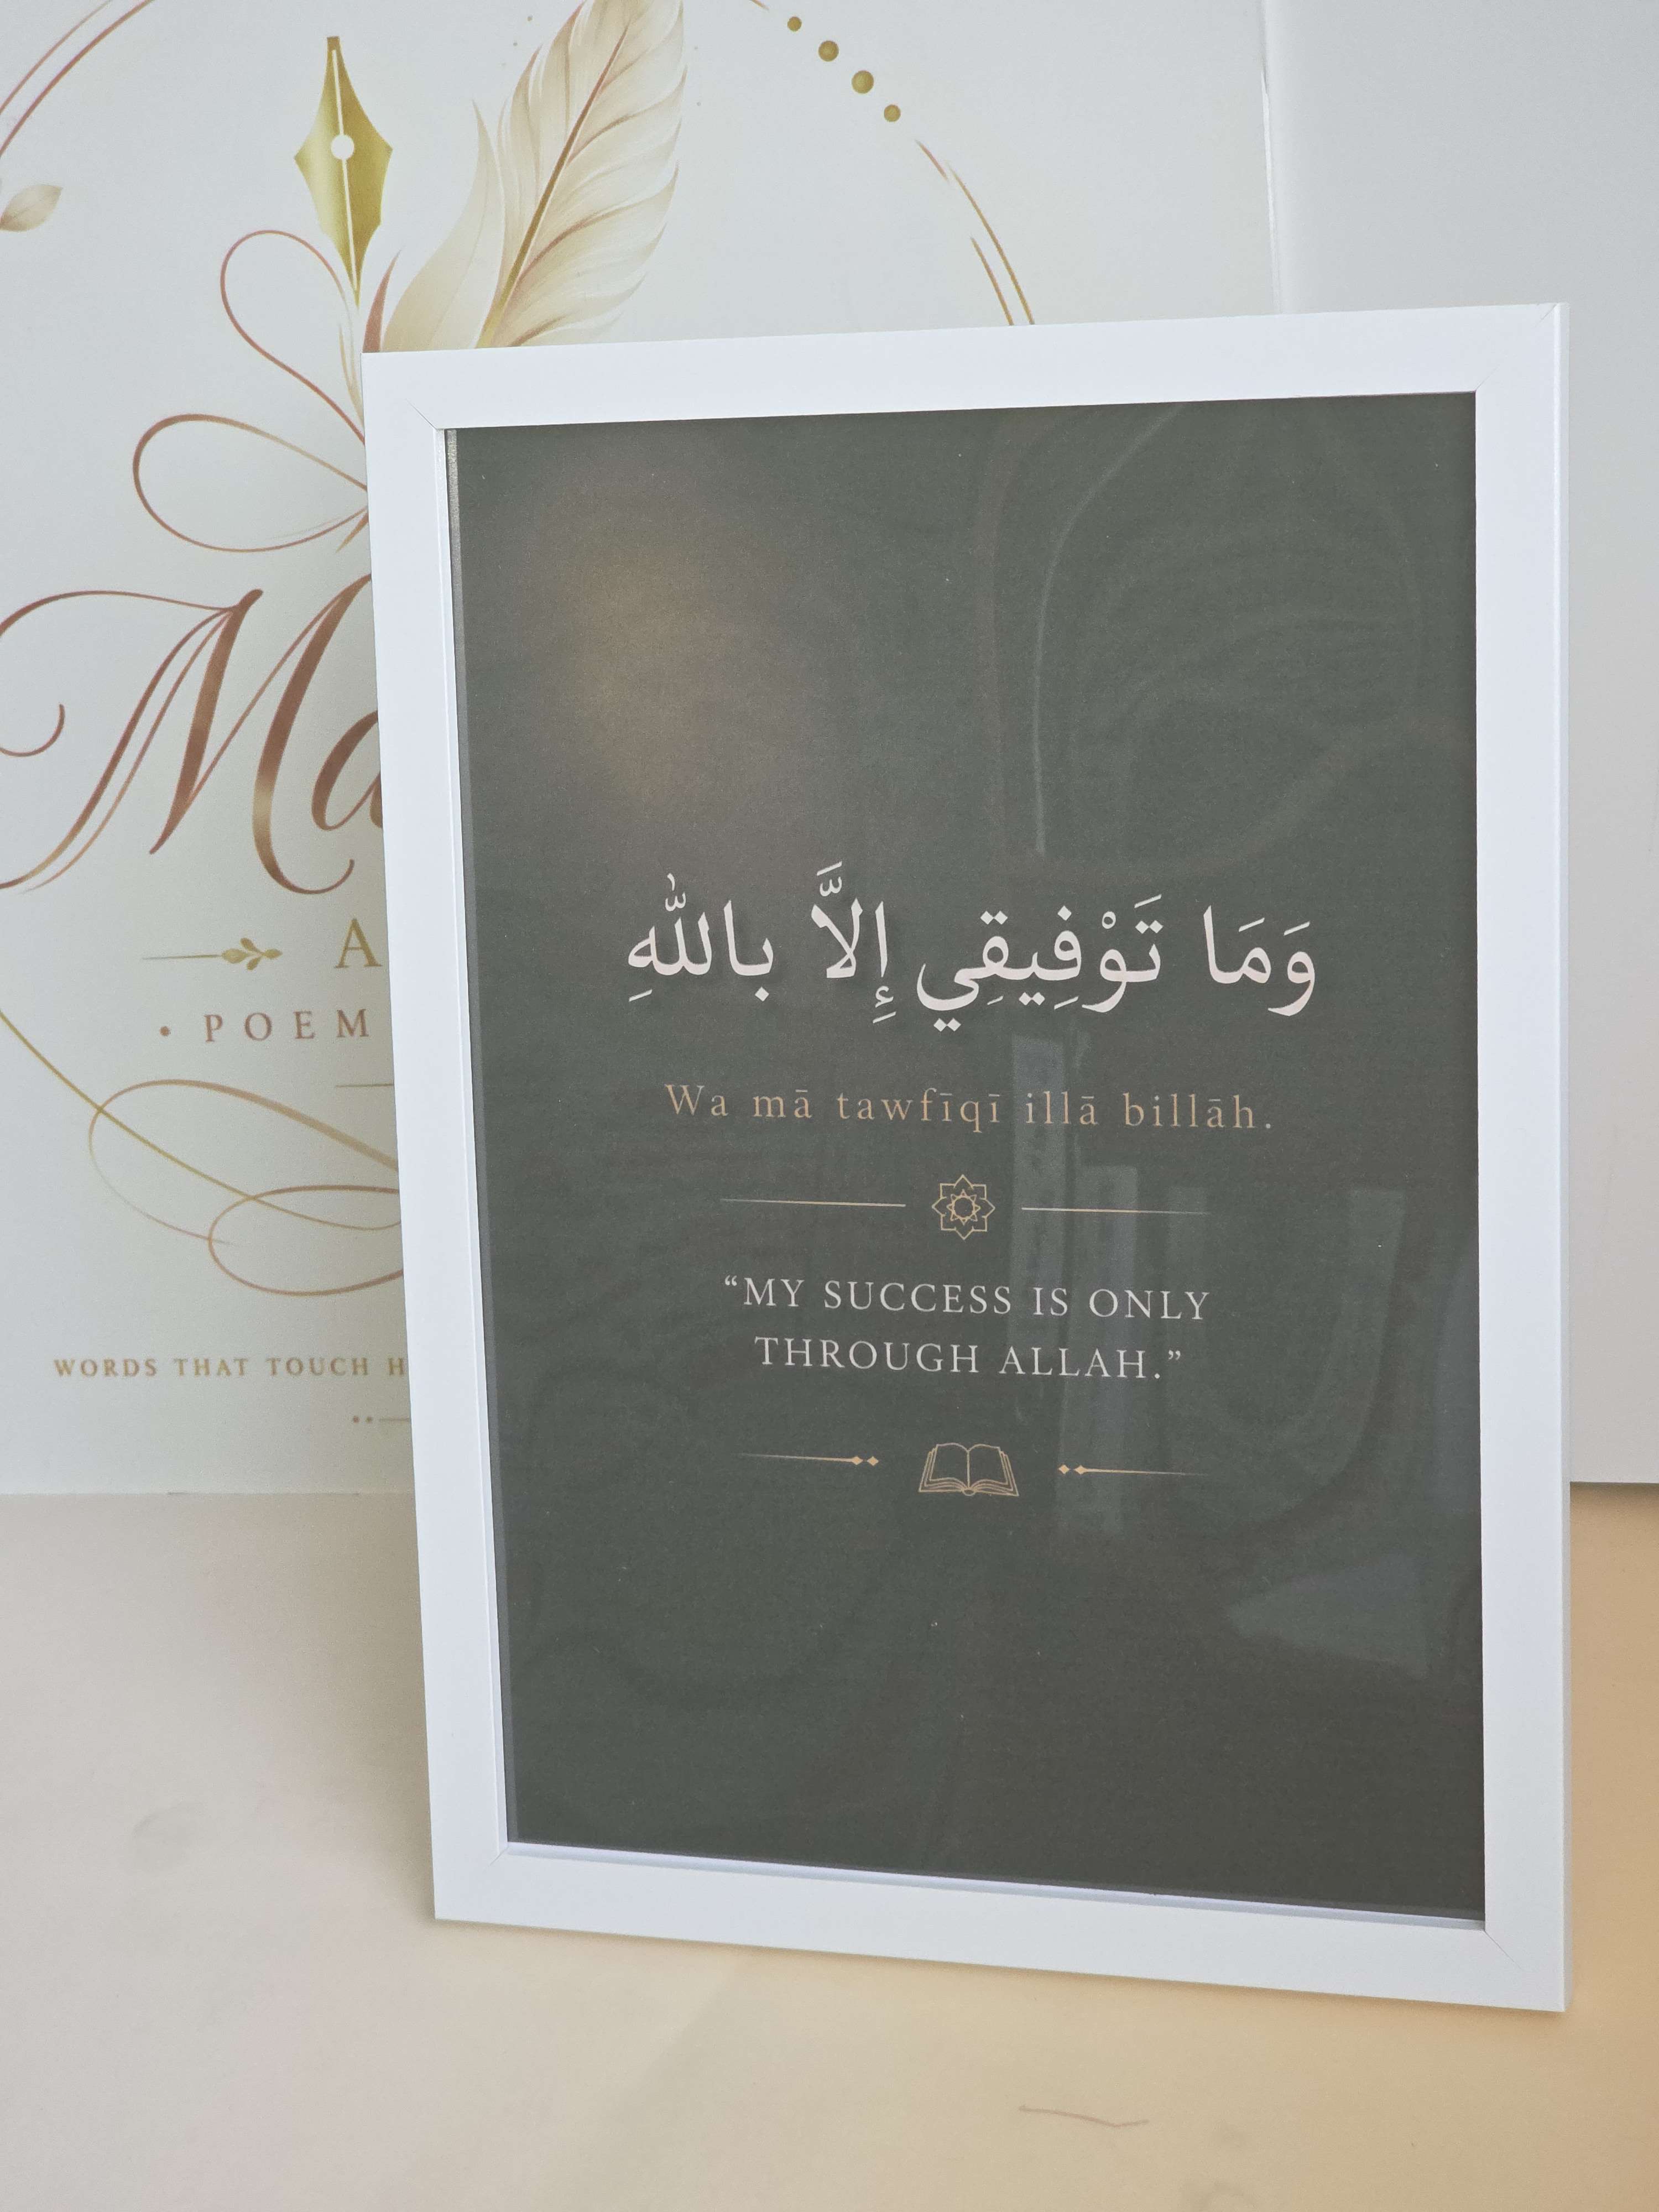 وَمَا تَوْفِيقِي إِلاَّ بالله
Wa mā tawfīqī illā billāh.
“MY SUCCESS IS ONLY
THROUGH ALLAH.”
• POEM
WORDS THAT TOUCH